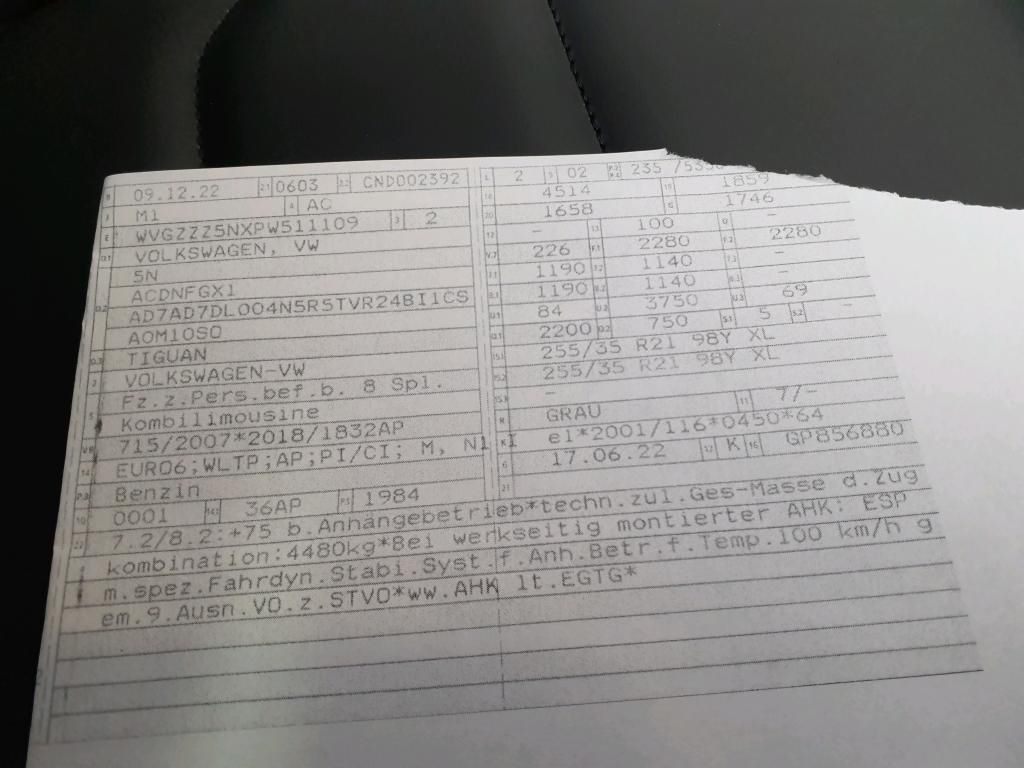 09.12.22 0603 CND002392
M1 AC
WVGZZZ5NXPW511109 2
VOLKSWAGEN, VW
5N
ACDNFGX1
AD7AD7DL004N5R5TVR24BI1CS
A0M10S0
TIGUAN
VOLKSWAGEN-VW
Fz.z.Pers.bef.b. 8 Spl.
Kombilimousine
715/2007*2018/1832AP
EURO6;WLTP;AP;PI/CI; M, N1 I
Benzin
0001 36AP 1984
2 02 235
4514 1859
1658 1746
- 100 -
226 2280 2280
1190 1140 -
1190 1140 -
84 3750 69
2200 750 5 -
255/35 R21 98Y XL
255/35 R21 98Y XL
-
GRAU 7/-
e1*2001/116*0450*64
17.06.22 K GP856880
7.2/8.2:+75 b.Anhängebetrieb*techn.zul.Ges-Masse d.Zug
kombination:4480kg*Bei werkseitig montierter AHK: ESP
m.spez.Fahrdyn.Stabi.Syst.f.Anh.Betr.f.Temp.100 km/h g
em.9.Ausn.VO.z.STVO*ww.AHK lt.EGTG*